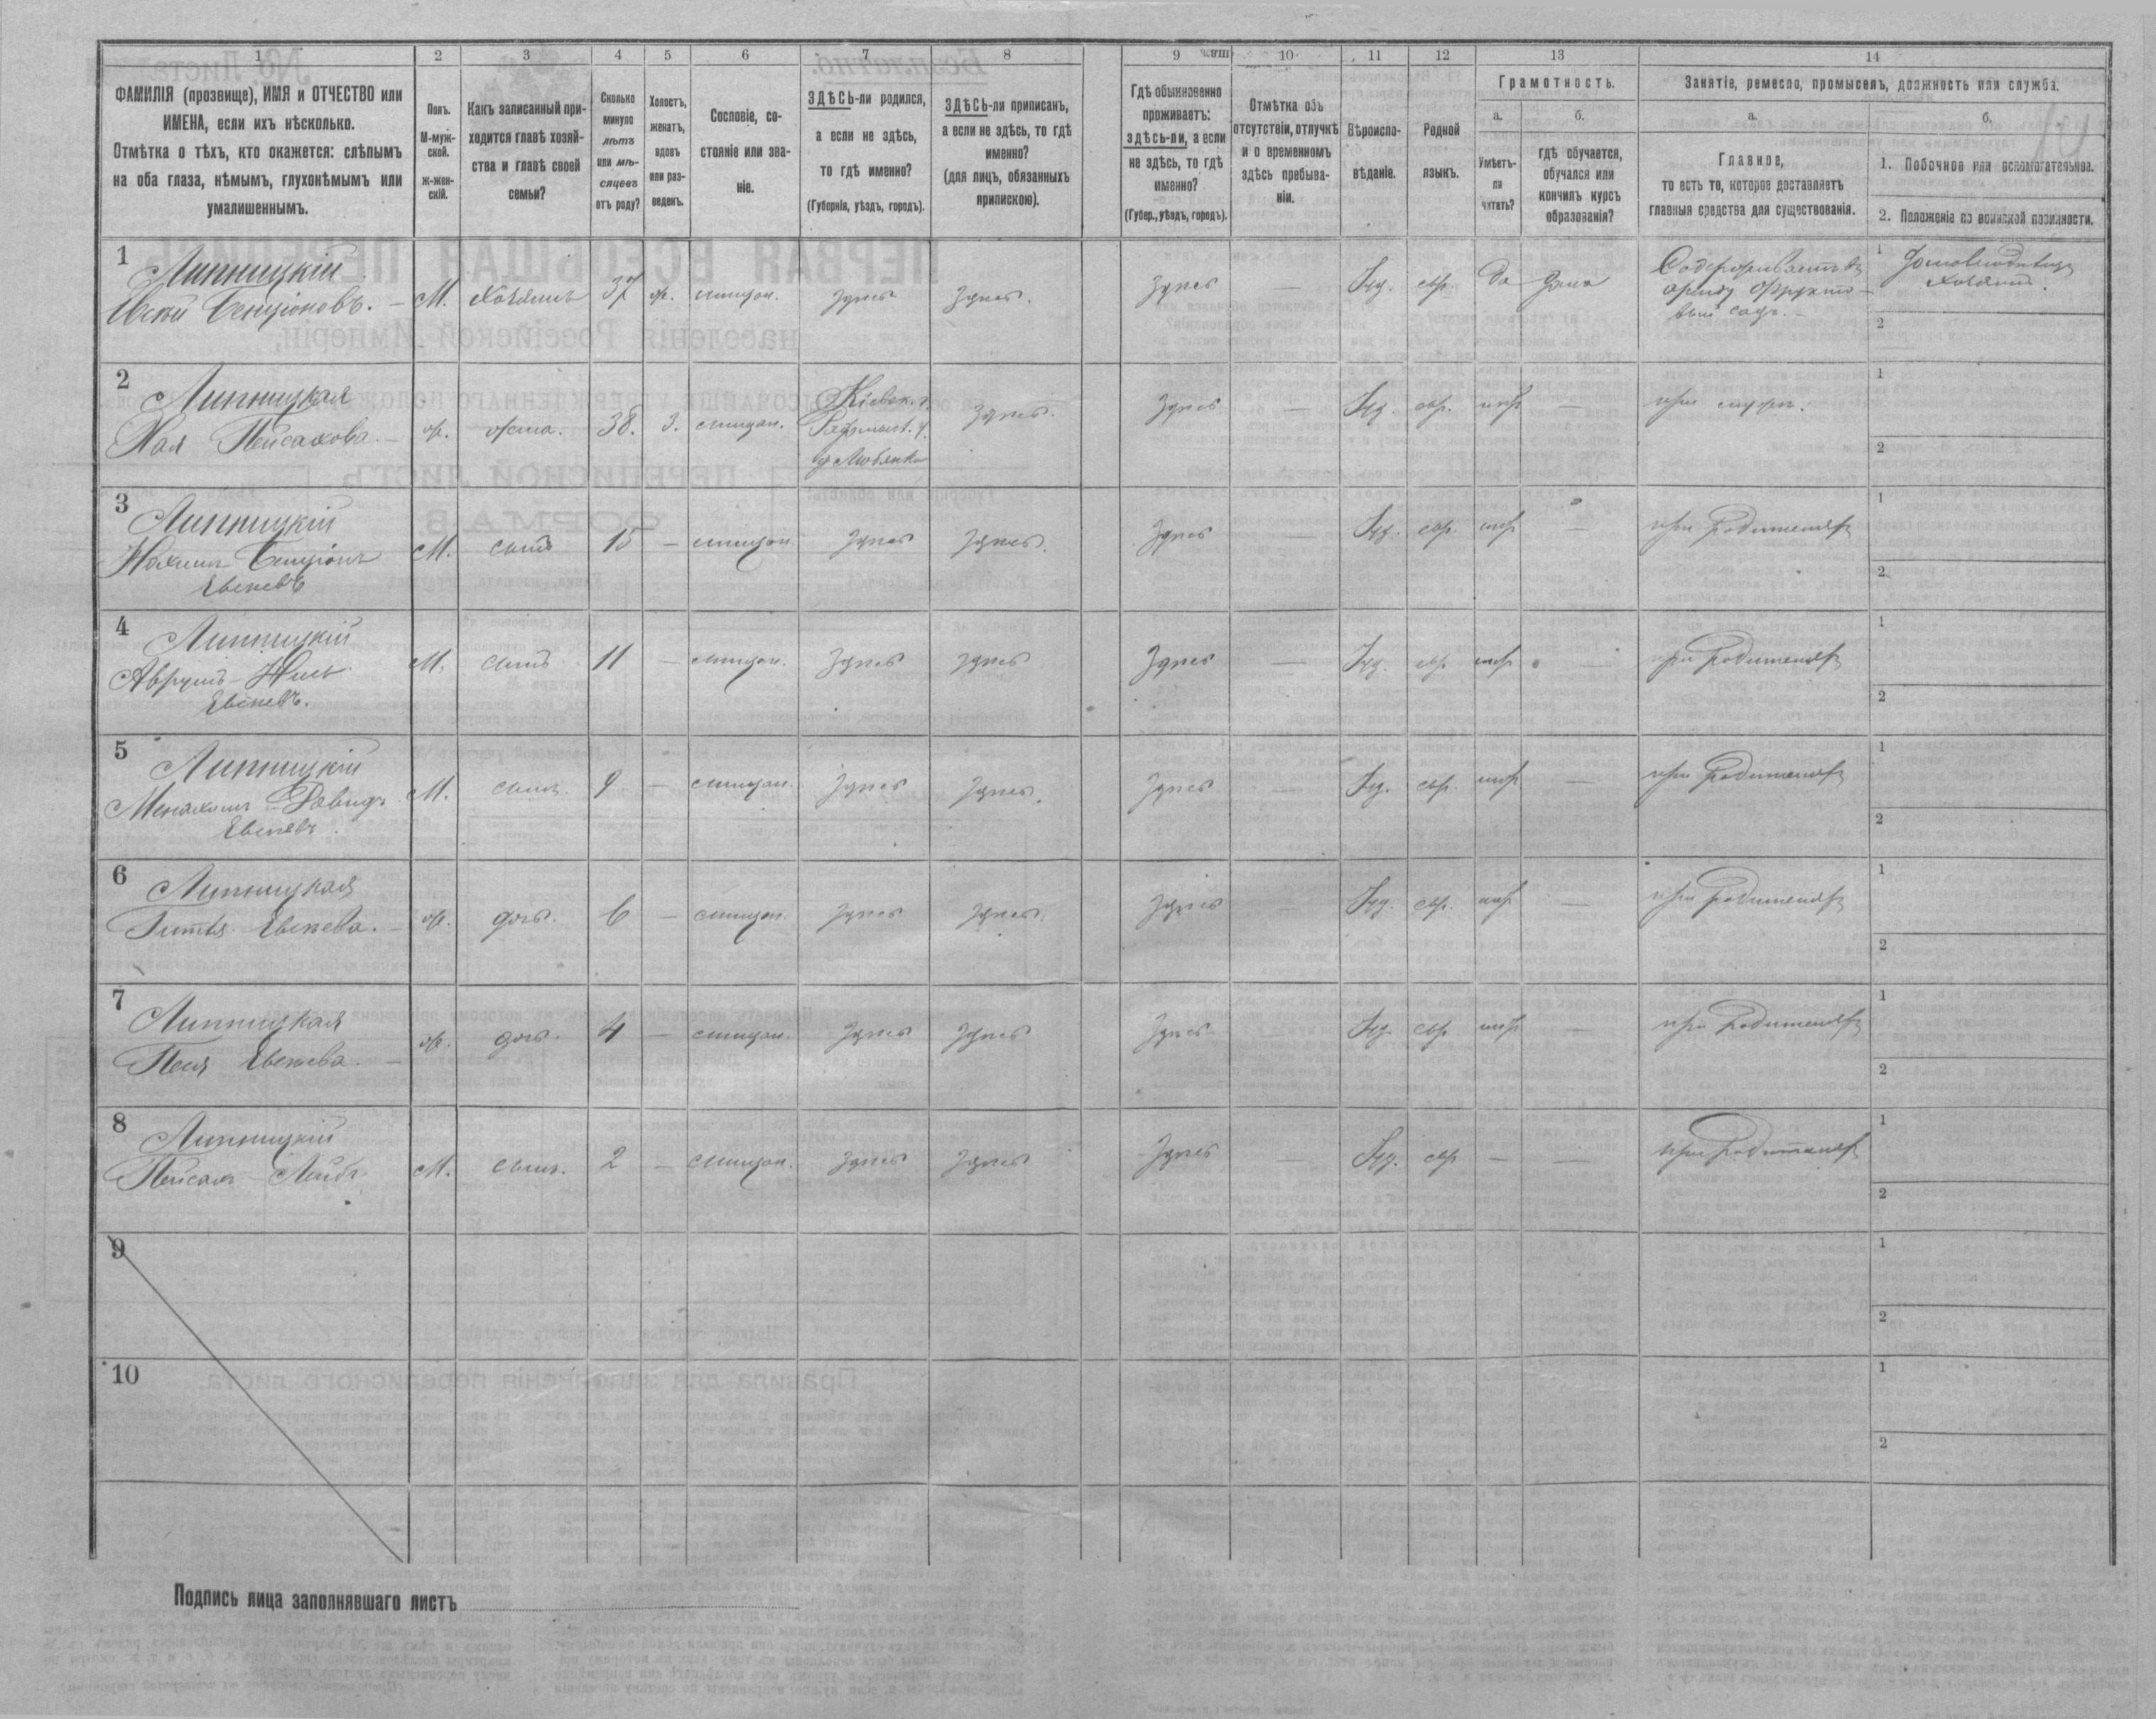 1 2 3 4 5 6 7 8 9 10 11 12 13 14
ФАМИЛІЯ (прозвище), ИМЯ и ОТЧЕСТВО или
ИМЕНА, если ихъ нѣсколько.
Отмѣтка о тѣхъ, кто окажется: слѣпымъ
на оба глаза, нѣмымъ, глухонѣмымъ или
умалишеннымъ.
Полъ.
М-муж-
ской.
Ж-жен-
скій.
Какъ записанный при-
ходится главѣ хозяй-
ства и главѣ своей
семьи?
Сколько
минуло
лѣтъ
или мѣ-
сяцевъ
отъ роду?
Холостъ,
женатъ,
вдовъ
или раз-
веденъ.
Сословіе, со-
стояніе или зва-
ніе.
ЗДѢСЬ-ли родился,
а если не здѣсь,
то гдѣ именно?
(Губернія, уѣздъ, городъ).
ЗДѢСЬ-ли приписанъ,
а если не здѣсь, то гдѣ
именно?
(для лицъ, обязанныхъ
припискою).
Гдѣ обыкновенно
проживаетъ:
здѣсь-ли, а если
не здѣсь, то гдѣ
именно?
(Губер., уѣздъ, городъ).
Отмѣтка объ
отсутствіи, отлучкѣ
и о временномъ
здѣсь пребыва-
ніи.
Вѣроиспо-
вѣданіе.
Родной
языкъ.
Грамотность.
а.
Умѣетъ-
ли
читать?
б.
гдѣ обучается,
обучался или
кончилъ курсъ
образованія?
Занятіе, ремесло, промыселъ, должность или служба.
а.
Главное,
то есть то, которое доставляетъ
главныя средства для существованія.
б.
1. Побочное или вспомогательное.
2. Положеніе по воинской повинности.
1 Липницкій
Евсѣй Бенціоновъ. М. хозяинъ 37 ж. мѣщан. здѣсь здѣсь. здѣсь — Іуд. евр. да дома
Содержаніе въ
аренду фрукто-
вый садъ.
1 Домовладѣлецъ
2
2 Липницкая
Хая Пейсахова. ж. жена. 38. З. мѣщан.
Кіевск. г.
Радомысл. у.
здѣсь. здѣсь — Іуд. евр. нѣт — при мужѣ.
1
2
3 Липницкій
Нохимъ Бенціонъ
Евсѣевъ
М. сынъ 15 — мѣщан. здѣсь здѣсь. здѣсь — Іуд. евр. нѣт — при родителяхъ
1
2
4 Липницкій
Аврумъ
Евсѣевъ.
М. сынъ 11 — мѣщан. здѣсь здѣсь здѣсь — Іуд. евр. нѣт — при родителяхъ
1
2
5 Липницкій
Менахимъ Давидъ
Евсѣевъ.
М. сынъ. 9 — мѣщан. здѣсь здѣсь. здѣсь — Іуд. евр. нѣт — при родителяхъ
1
2
6 Липницкая
Гитля Евсѣева. ж. дочь. 6 — мѣщан. здѣсь здѣсь. здѣсь — Іуд. евр. нѣт — при родителяхъ
1
2
7 Липницкая
Песя Евсѣева. ж. дочь. 4 — мѣщан. здѣсь здѣсь здѣсь — Іуд. евр. нѣт — при родителяхъ
1
2
8 Липницкій
Пейсахъ Лейбъ М. сынъ. 2 — мѣщан. здѣсь здѣсь здѣсь — Іуд. евр — — при родителяхъ
1
2
9
1
2
10
1
2
Подпись лица заполнявшаго листъ